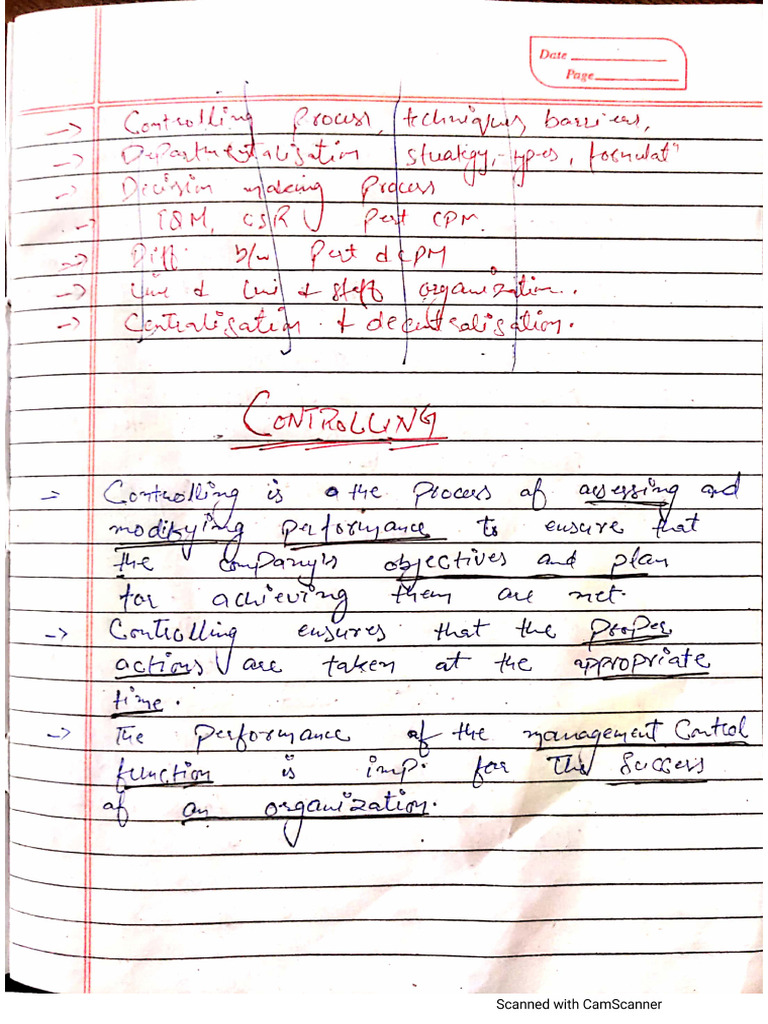 Date
Page
→ Controlling Process, techniques, barriers,
→ Departmentalisation strategy, types, formulatⁿ
→ Decision making Process
→ TQM, CSR Pert CPM.
→ Diff. b/w Pert & CPM
→ Line & Line & staff organization..
→ Centralisation & decentralisation.
CONTROLLING
→ Controlling is the process of assessing and
modifying performance to ensure that
the company's objectives and plan
for achieving them are met.
→ Controlling ensures that the proper
actions are taken at the appropriate
time.
→ The performance of the management Control
function is imp. for the success
of an organization.
Scanned with CamScanner